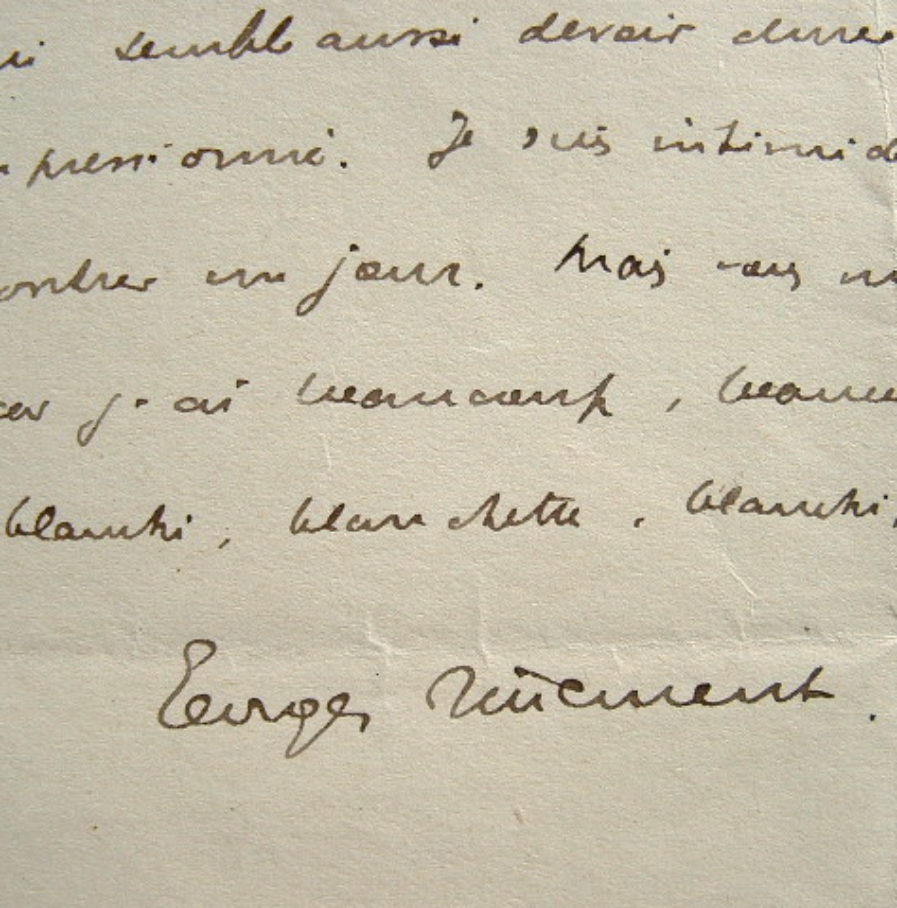 semble aussi devoir durer
pressionné. Je suis intimid
ontrer un jour. Mais vous
car j'ai beaucoup, beauc
blanchi, blanchette, blanchi,
Georges